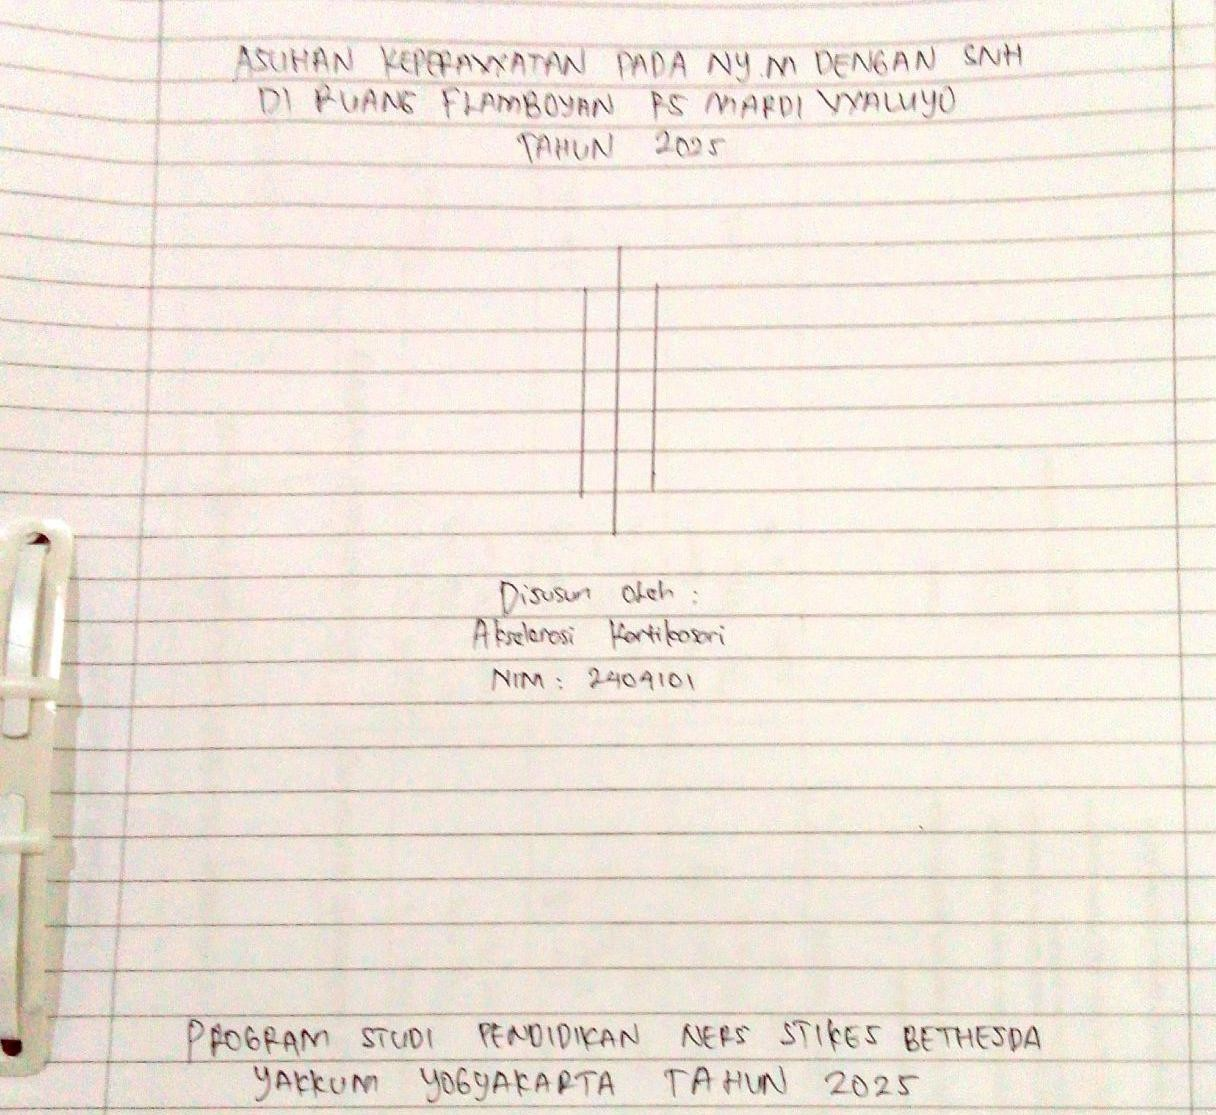 ASUHAN KEPERAWATAN PADA NY.M DENGAN SNH
DI RUANG FLAMBOYAN RS MARDI WALUYO
TAHUN 2025
Disusun Oleh :
Akselerasi Kartikasari
NIM : 2404101
PROGRAM STUDI PENDIDIKAN NERS STIKES BETHESDA
YAKKUM YOGYAKARTA TAHUN 2025